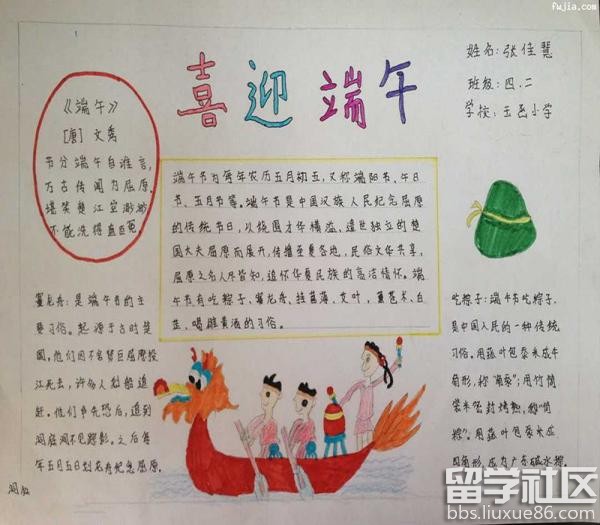 fwjia.com
喜迎端午
姓名:张佳慧
班级:四.二
学校:玉函小学
《端午》
[唐] 文秀
节分端午自谁言,
万古传闻为屈原.
堪笑楚江空渺渺
不能洗得直臣冤
端午节为每年农历五月初五,又称端阳节、午日
节、五月节等。端午节是中国汉族人民纪念屈原
的传统节日,以绕围才华横溢,遗世独立的楚
国大夫屈原而展开,传播至夏各地,民俗文华共享,
屈原之名人尽皆知,追怀华夏民族的高洁情怀。端
午节有吃粽子、赛龙舟、挂菖蒲、艾叶,薰苍术、白
芷、喝雄黄酒的习俗。
赛龙舟:是端午节的主
要习俗。起源于古时楚
国,他们因不舍贤臣屈原投
江死去,许多人划船追
赶。他们争先恐后,追到
洞庭湖不见踪影。之后每
年五月五日划龙舟纪念屈原.
吃粽子:端午节吃粽子.
是中国人民的一种传统
习俗。用菰叶包黍米成牛
角形,称"角黍";用竹筒
装米密封烤熟,称"筒
粽"。用菰叶包黍米成
四角形,成为广东碱水粽.
留学社区
bbs.liuxue86.com